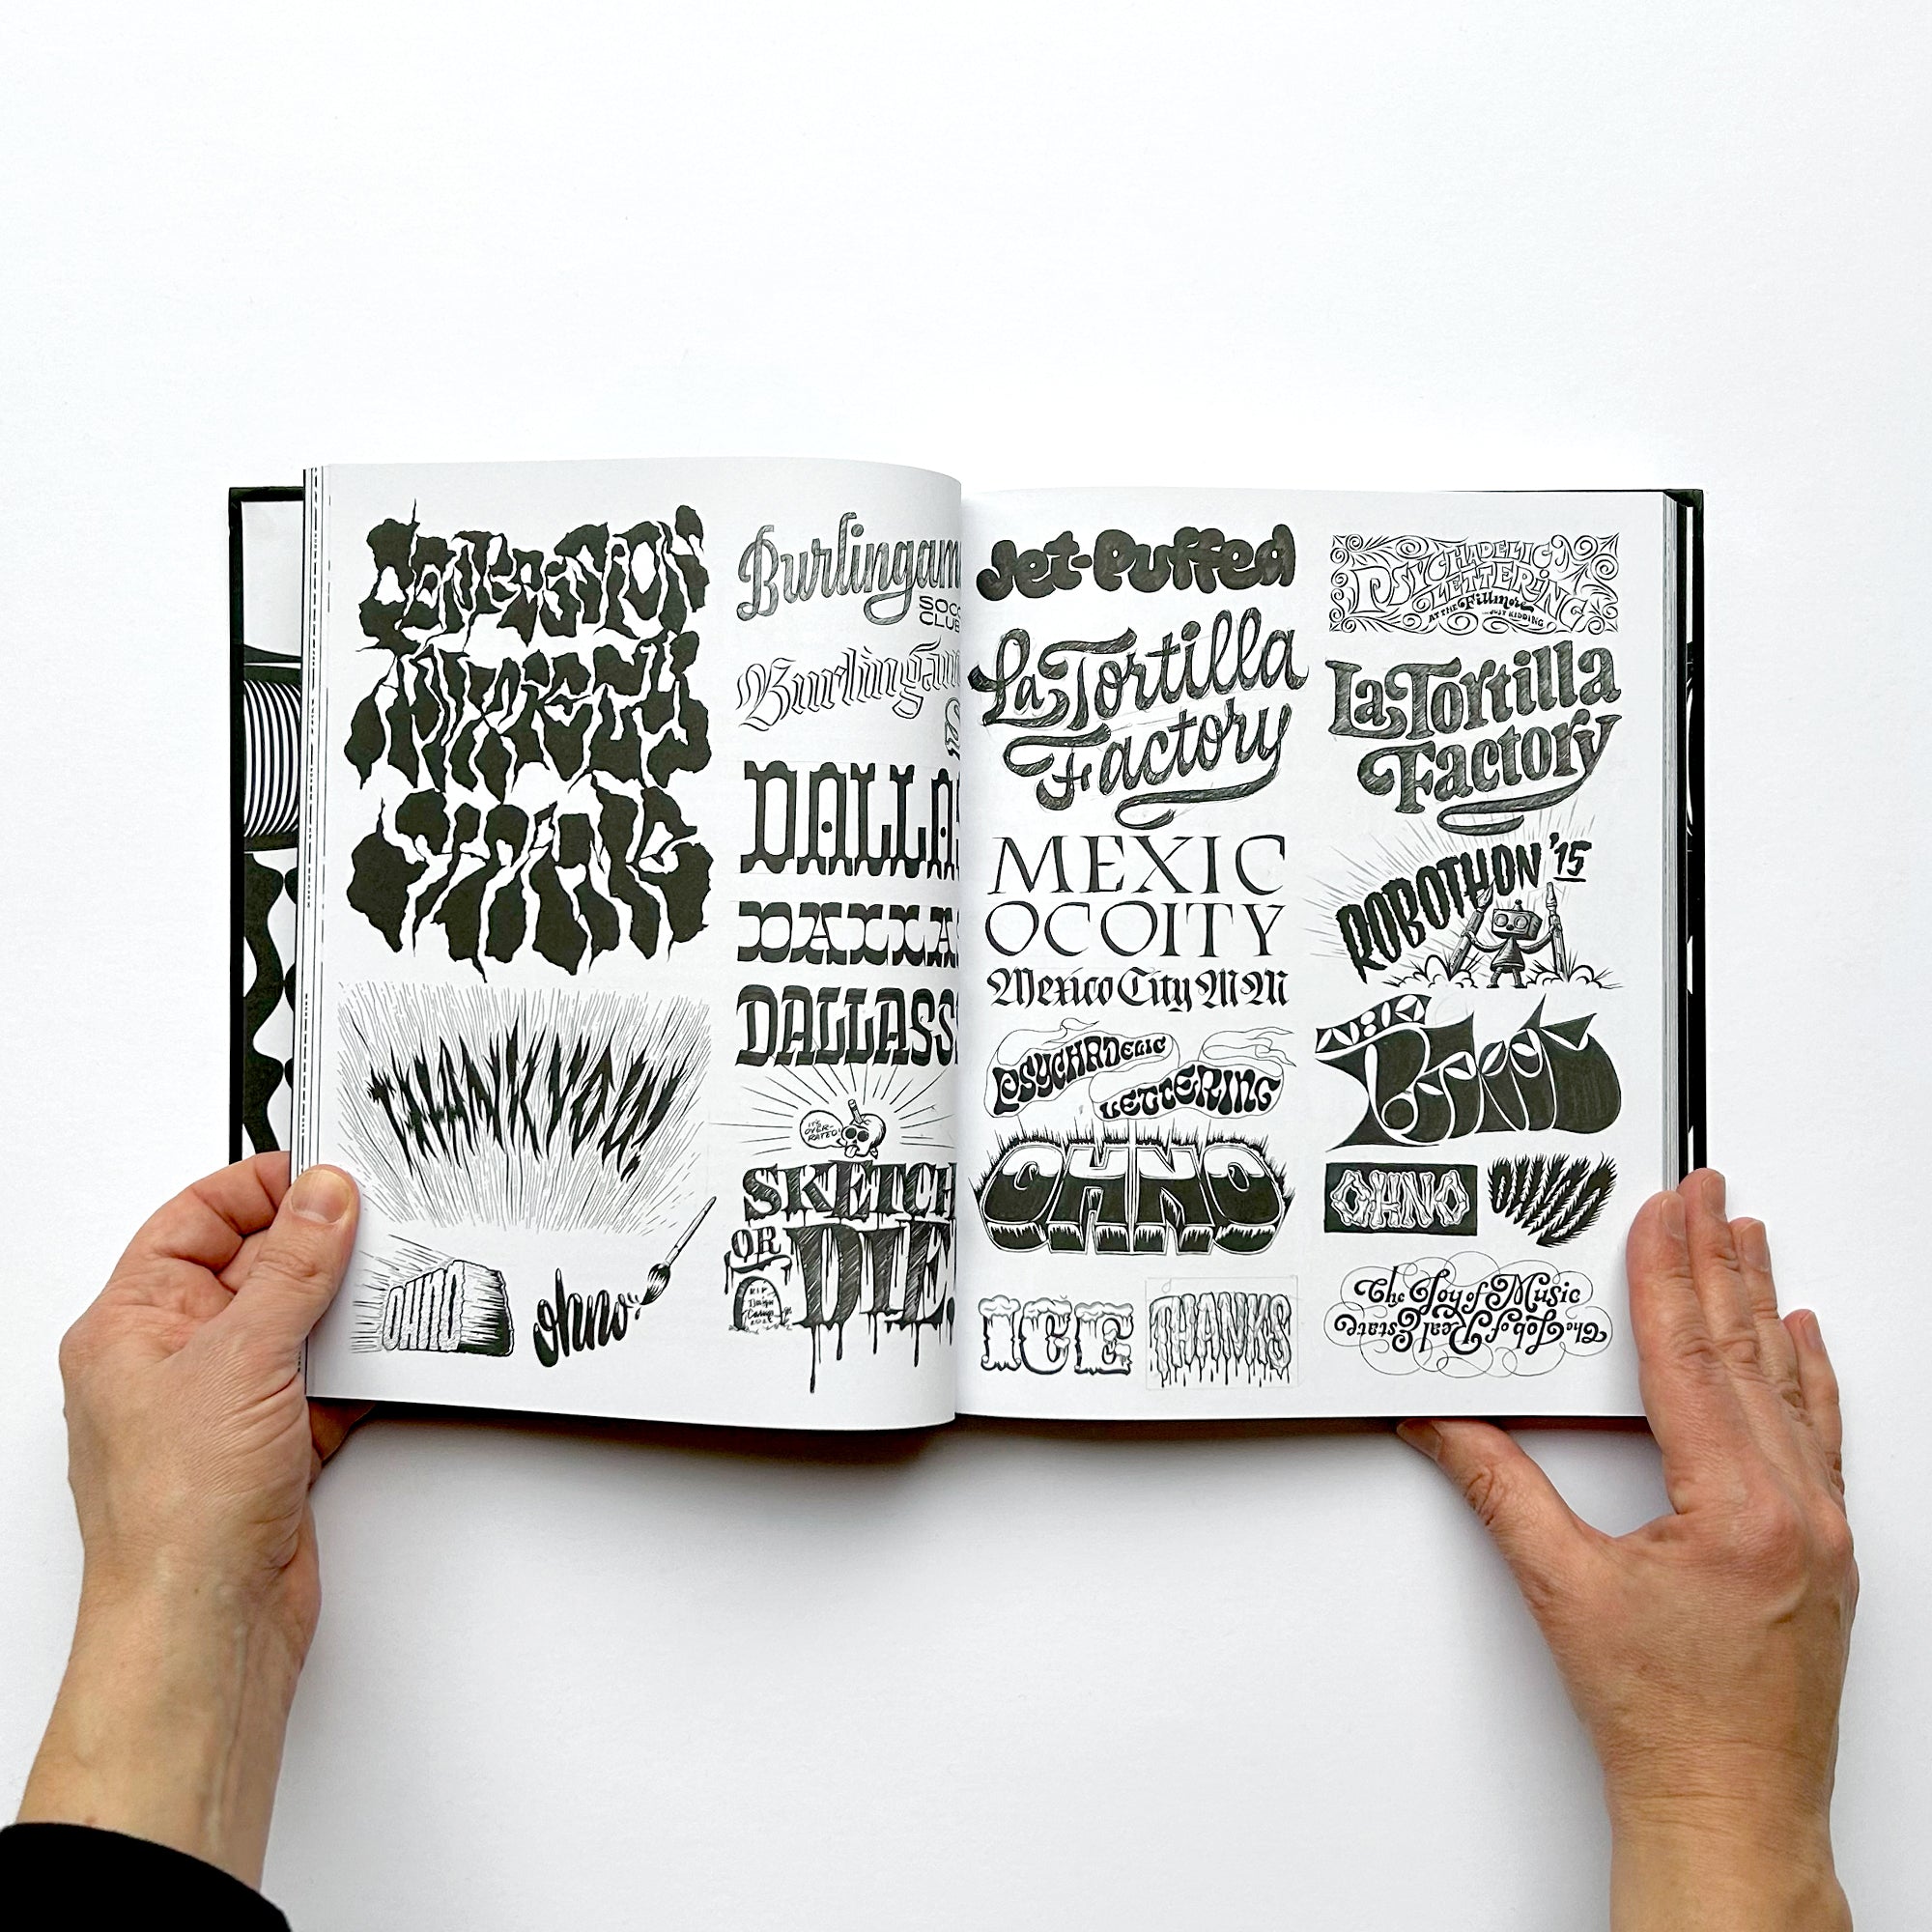 DEPRESSION
THANKYOU!
OHNO
ohno
Burlingam
SOCC
CLUB
Burlingam
S
DALLAS
DALLAS
DALLASS
IT'S
OVER-
RATED!
SKETCH
OR
DIE!
RIP
Jet-Puffed
La Tortilla
Factory
MEXIC
OCOITY
Mexico City MM
PSYCHADELIC
LETTERING
OHNO
ICE
THANKS
PSYCHADELIC
LETTERING
AT THE Fillmore
JUST KIDDING
La Tortilla
Factory
ROBOTHON '15
OHNO
OHNO
The Joy of Music
The Job of Real Estate